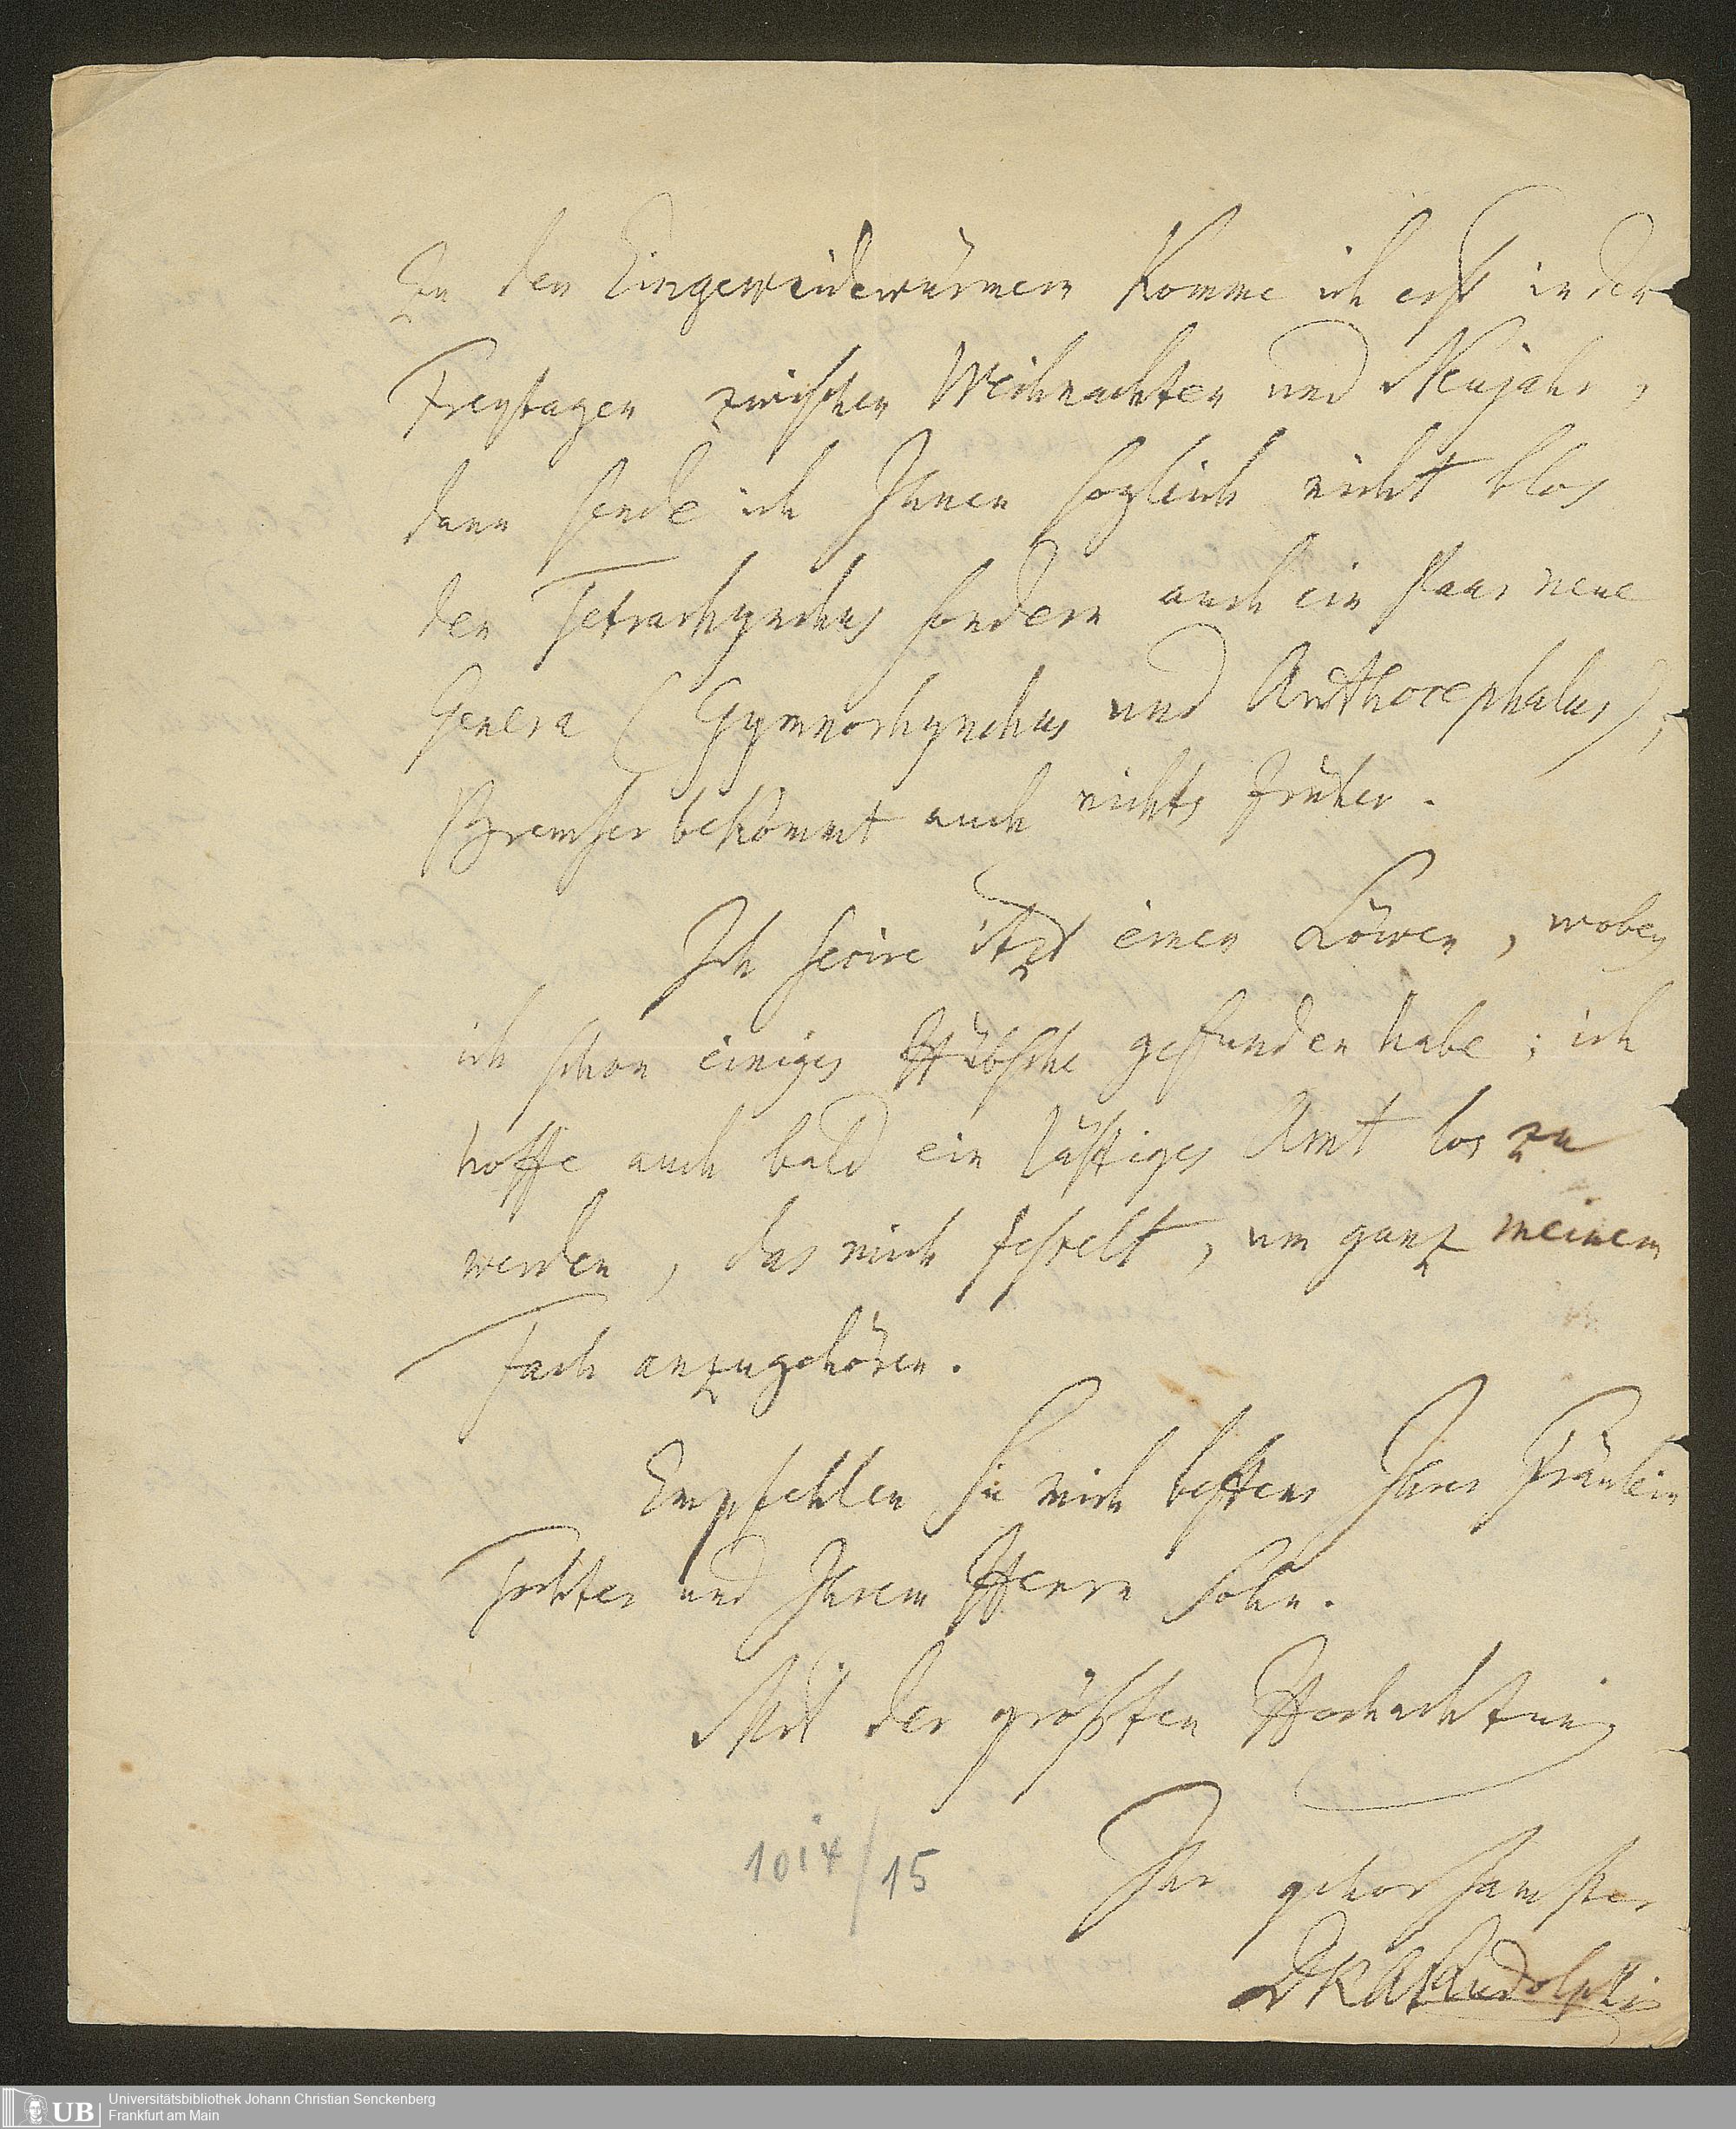 Zu den Eingeweidewürmern komme ich erst in den
Freytagen zwischen Weihnachten und Neujahr,
dann sende ich Ihnen sogleich nicht blos
den Tetrarhynchus sondern auch ein Paar neue
Genera (Gymnorhynchus und Anthocephalus);
Bremser bekommt auch nichts früher.
Ich secire itzt einen Löwen, wobey
ich schon einiges Hübsche gefunden habe; ich
hoffe auch bald ein lästiges Amt los zu
werden, das mich fesselt, um ganz meinem
Fach anzugehören.
Empfehlen Sie mich bestens Ihrer Fräulein
Tochter und Ihrem Herrn Sohn.
Mit der größten Hochachtung
Ihr gehorsamster
DKARudolphi
1014/15
UB
Universitätsbibliothek Johann Christian Senckenberg
Frankfurt am Main